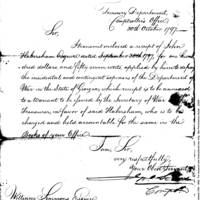 Treasury Department,
Comptroller's Office
30th October 1797.
Sir,
Herewith enclosed a receipt of John
Habersham Esquire dated September 30th 1797, for one hun-
dred dollars, and fifty seven cents, applied by him to defray
the incidental and contingent expenses of the Department of
War in the State of Georgia, which receipt is to be annexed
to a warrant to be issued by the Secretary of War on the
Treasurer, in favor of said Habersham, who is to be
charged and held accountable for the same in the
Books of your Office.
I am Sir,
very respectfully,
Your Obed. Servant
Compt
William Simmons Esquire